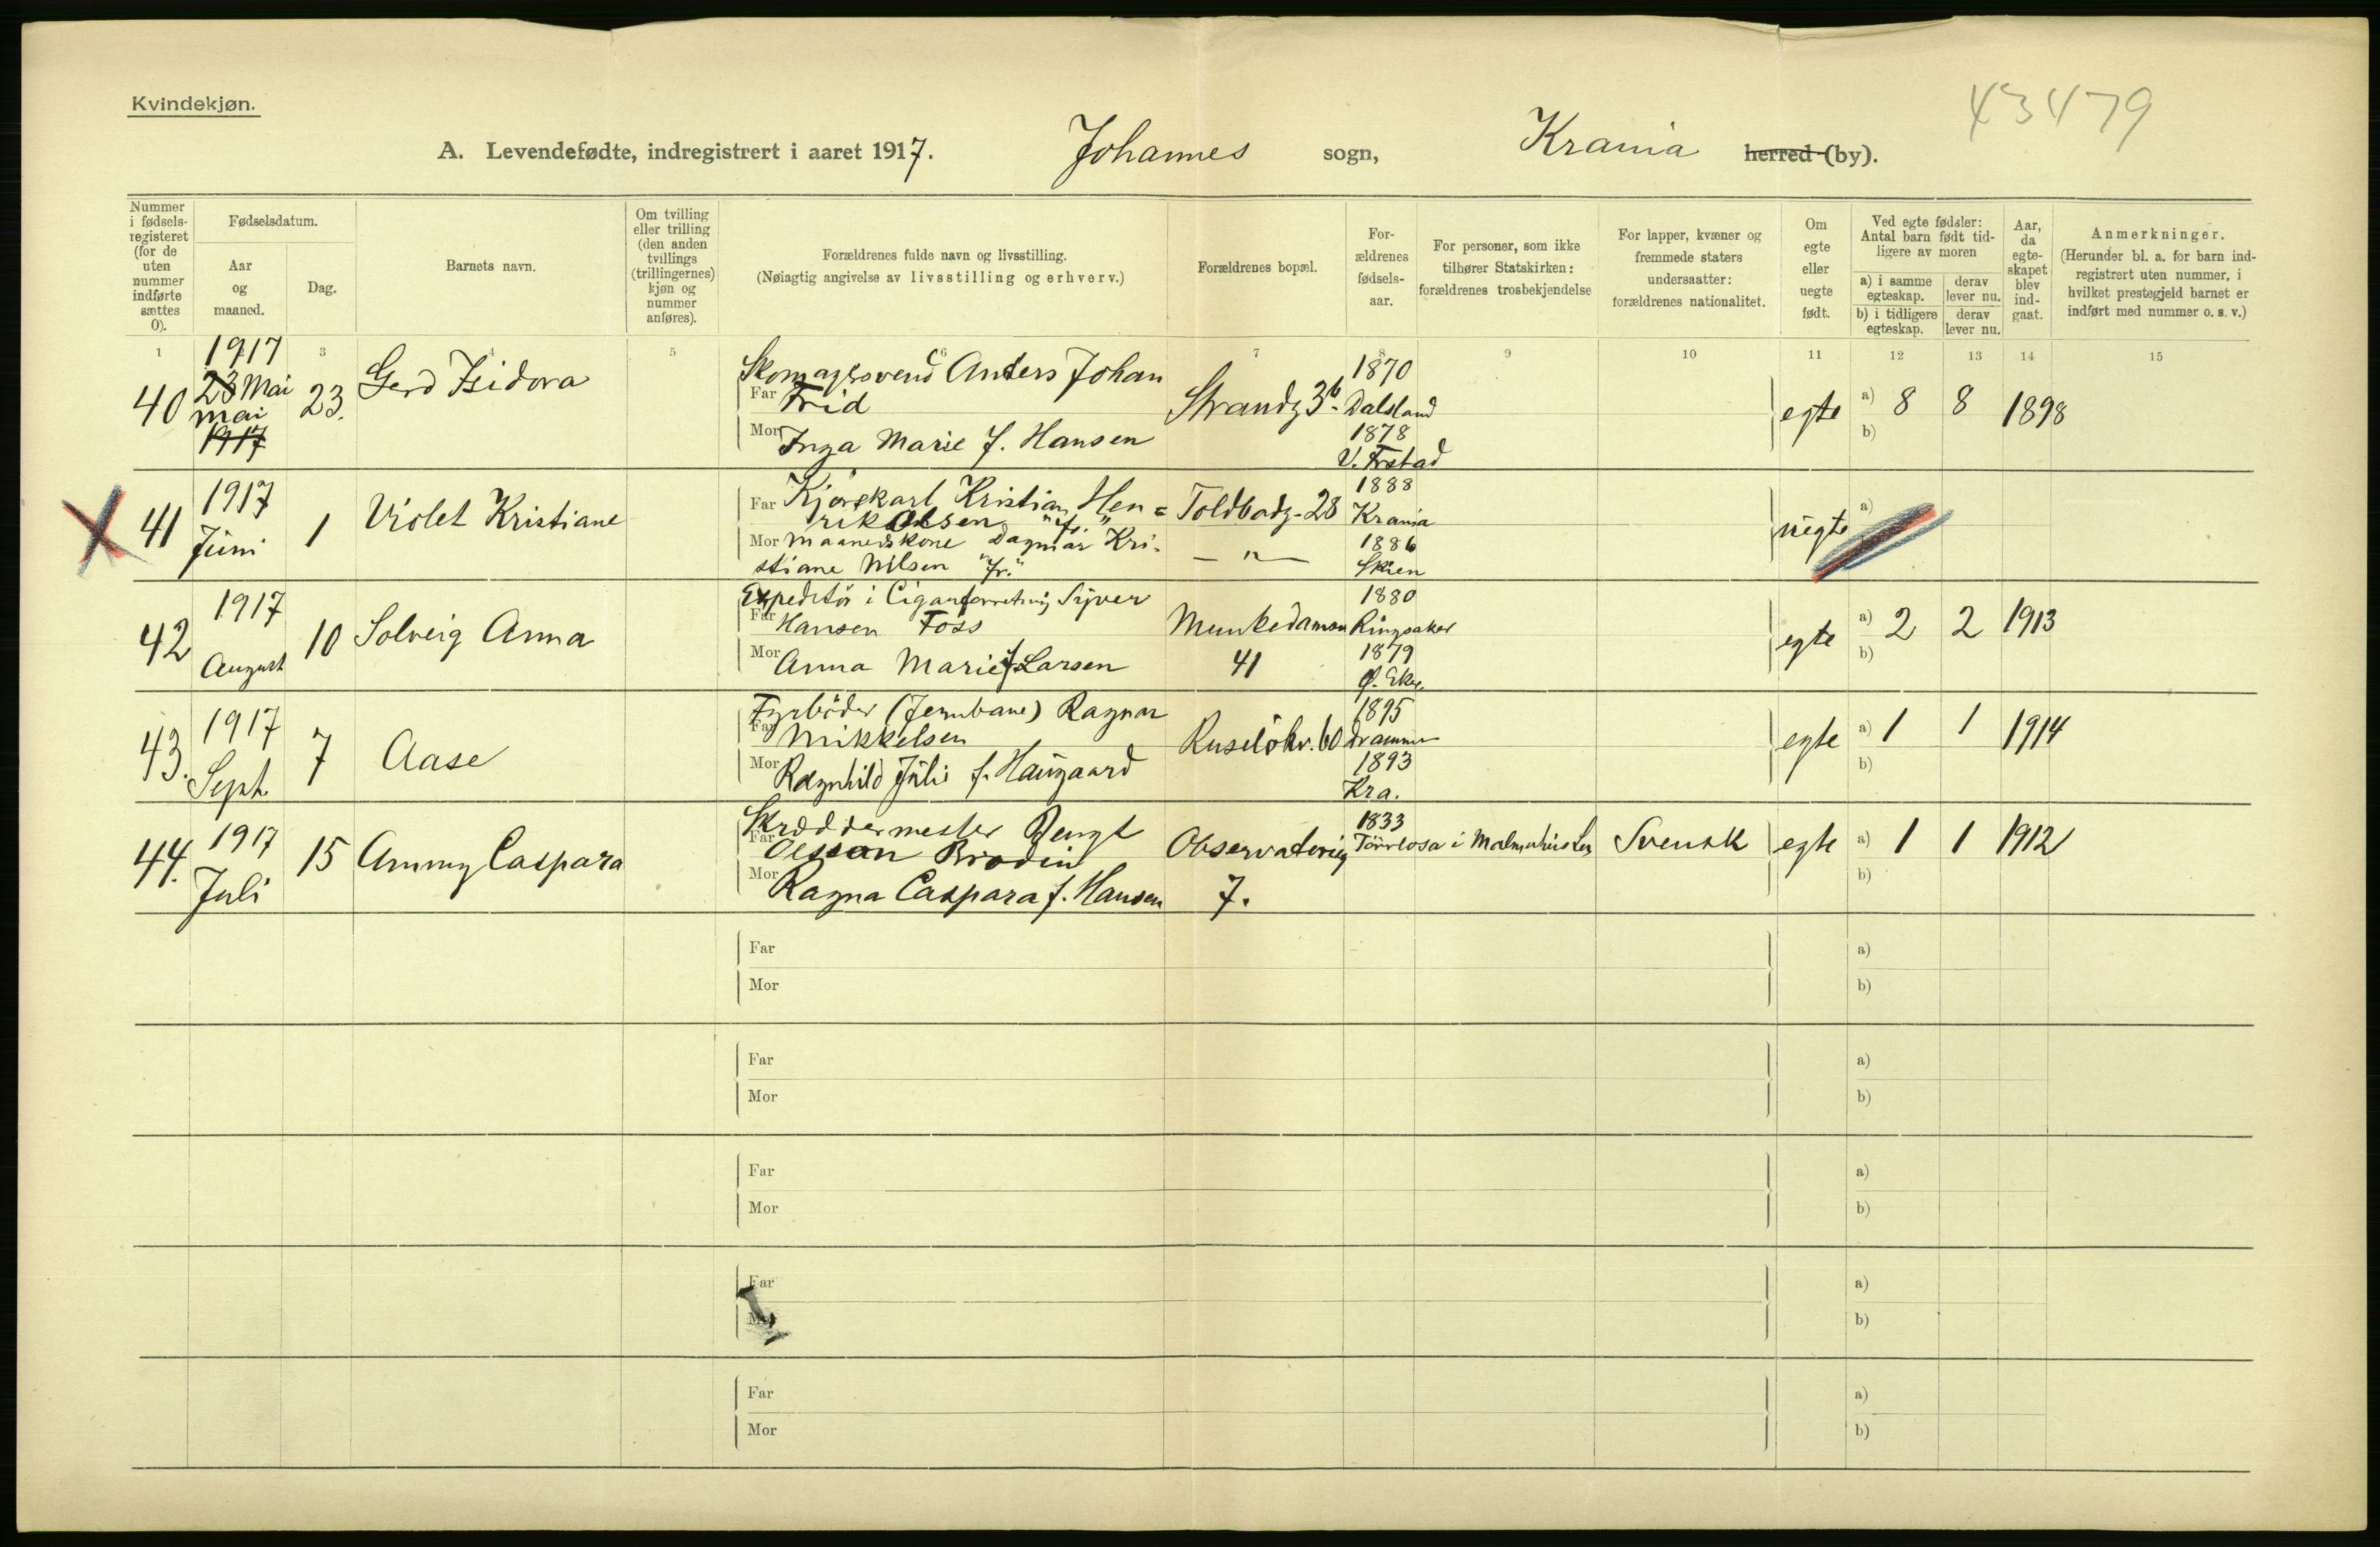 Kvindekjøn.
43479
A. Levendefødte, indregistrert i aaret 1917. Johannes sogn, Krania herred (by).
Nummer i fødsels-registeret (for de uten nummer indførte sættes 0).
Fødselsdatum.
Aar og maaned.
Dag.
Barnets navn.
Om tvilling eller trilling (den anden tvillings (trillingernes) kjøn og nummer anføres).
Forældrenes fulde navn og livsstilling.
(Nøiagtig angivelse av livsstilling og erhverv.)
Forældrenes bopæl.
For-ældrenes fødsels-aar.
For personer, som ikke tilhører Statskirken: forældrenes trosbekjendelse
For lapper, kvæner og fremmede staters undersaatter: forældrenes nationalitet.
Om egte eller uegte født.
Ved egte fødsler: Antal barn født tid-ligere av moren
a) i samme egteskap.
derav lever nu.
b) i tidligere egteskap.
derav lever nu.
Aar, da egte-skapet blev ind-gaat.
Anmerkninger.
(Herunder bl. a. for barn ind-registrert uten nummer, i hvilket prestegjeld barnet er indført med nummer o. s. v.)
1 3 5 6 7 8 9 10 11 12 13 14 15
40 1917 23 Mai mai 1917 23. Gerd Isidora
Skomagersvend Anders Johan
Far Frid
Mor Inga Marie f. Hansen
Strandg 3b. 1870 Dalsland
1878 V. Frstad
egte a) 8 8 1898
b)
41 1917 Juni 1 Violet Kristiane
Far Kjørekarl Kristian Hen=
rik Olsen "fr."
Mor Maanedskone Dagmar Kri-
stiane Nilsen "fr."
Toldbodg-28 1888 Krania
— " — 1886 Skien
uegte a)
42 1917 August 10 Solveig Anna
Expeditør i Cigarforretning Syver
Far Hansen Foss
Mor Anna Marie f. Larsen
Munkedamsv 41
1880 Ringsaker
1879 Ø. Eker.
egte a) 2 2 1913
b)
43. 1917 Sept 7 Aase
Fyrbøder (Jernbane) Ragnar
Far Mikkelsen
Mor Ragnhild Julie f. Haugaard
Ruseløkv. 60 1895 Drammen
1893 Kra.
egte a) 1 1 1914
b)
44. 1917 Juli 15 Ammy Caspara
Skræddermester Bengt
Far Olsson Brodin
Mor Ragna Caspara f. Hansen
Observatorieg 7.
1833
Törrlosa i Malmøhus Len Svensk egte a) 1 1 1912
b)
Far a)
Mor b)
Far a)
Mor b)
Far a)
Mor b)
Far a)
Mor b)
Far a)
Mor b)